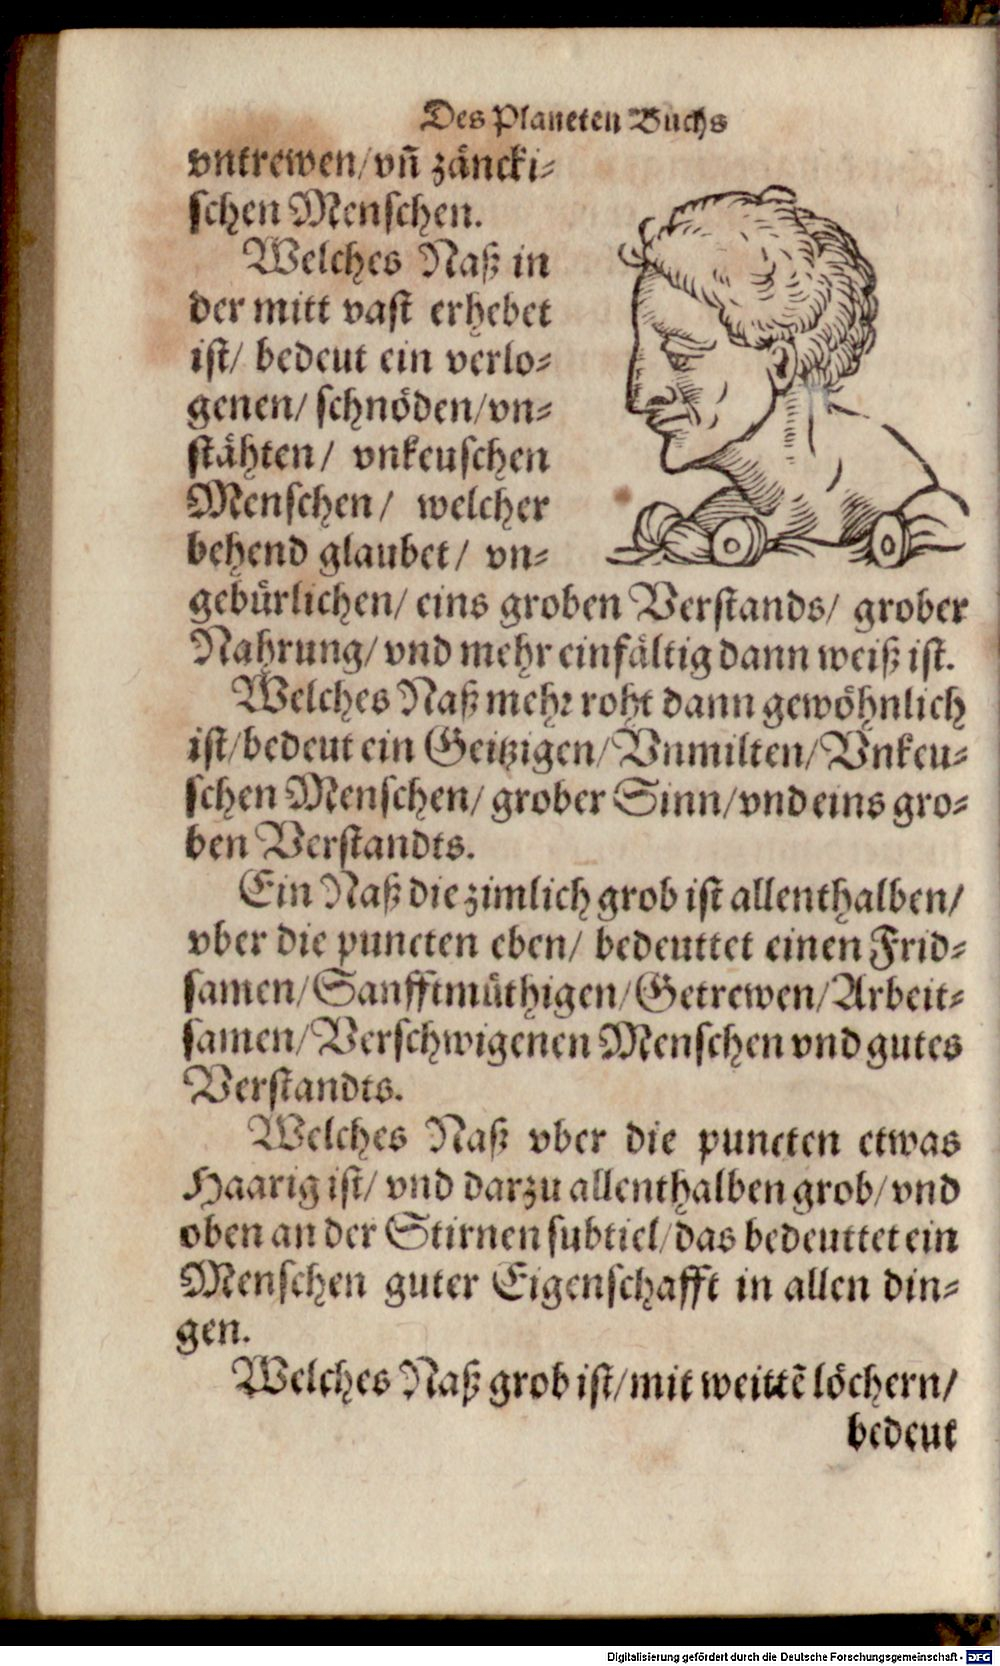 Des Planeten Buchs
vntrewen/vn̄ zäncki⸗
schen Menschen.
Welches Naß in
der mitt vast erhebet
ist/ bedeut ein verlo⸗
genen/ schnöden/vn⸗
stähten/ vnkeuschen
Menschen/ welcher
behend glaubet/ vn⸗
gebürlichen/ eins groben Verstands/ grober
Nahrung/ vnd mehr einfältig dann weiß ist.
Welches Naß mehr roht dann gewöhnlich
ist/bedeut ein Geitzigen/Vnmilten/Vnkeu⸗
schen Menschen/ grober Sinn/vnd eins gro⸗
ben Verstandts.
Ein Naß die zimlich grob ist allenthalben/
vber die puncten eben/ bedeuttet einen Frid⸗
samen/Sanfftmüthigen/Getrewen/Arbeit⸗
samen/Verschwigenen Menschen vnd gutes
Verstandts.
Welches Naß vber die puncten etwas
Haarig ist/ vnd darzu allenthalben grob/vnd
oben an der Stirnen subtiel/das bedeuttet ein
Menschen guter Eigenschafft in allen din⸗
gen.
Welches Naß grob ist/mit weittē löchern/
bedeut
Digitalisierung gefördert durch die Deutsche Forschungsgemeinschaft - DFG